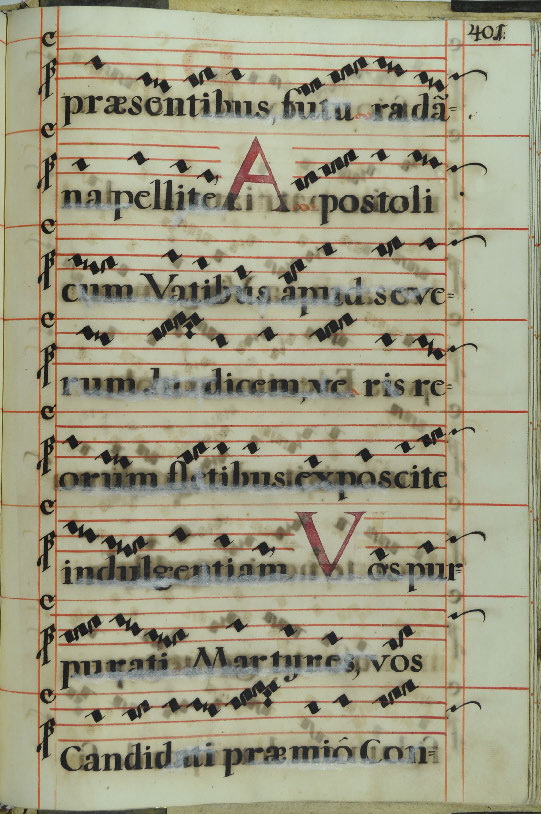 401.
præsentibus, futu ra dã=
na pellite. A postoli
cum Vatibus apud seve=
rum Judicem, ve ris re=
orum fletibus exposcite
indulgentiam Vos pur
purati Martyres, vos
Candidati præmiô Con=